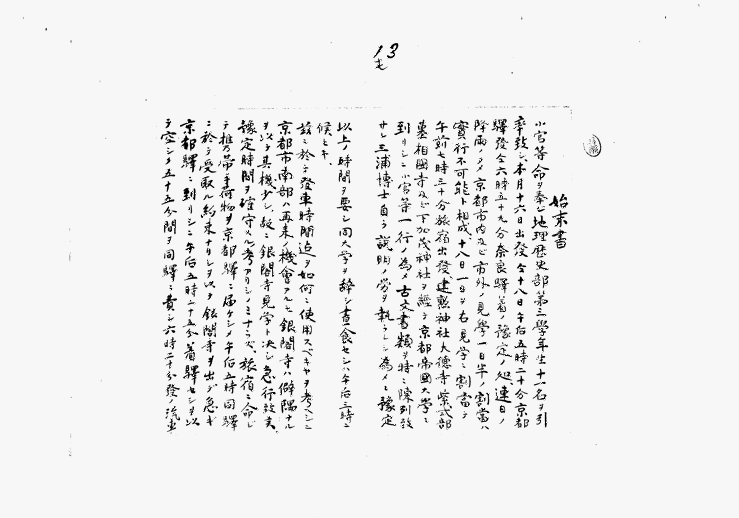 13
始末書
小官等命ヲ奉ジ地理歴史部第三學年生十一名ヲ引
率致シ本月十六日出發仝十八日午后五時二十分京都
驛發仝六時五十九分奈良驛着ノ豫定ノ処連日ノ
降雨ノタメ京都市内及ビ市外ノ見學一日半ノ割當ハ
實行不可能ト相成十八日一日ヲ右見學ニ割當テ
午前七時三十分旅宿出發建勲神社大德寺紫式部
墓相國寺及ビ下加茂神社ヲ經テ京都帝國大學ニ
到リシニ小官等一行ノ為メ古文書類ヲ特ニ陳列致
サレ三浦博士自ラ説明ノ労ヲ執ラレシ為メニ豫定
以上ノ時間ヲ要シ同大学ヲ辞シ晝食セシハ午后三時ニ
候ヒキ
茲ニ於テ發車時間迄ヲ如何ニ使用スベキヤヲ考ヘシニ
京都市南部ハ再来ノ機會アルモ銀閣寺ハ僻隅ナル
ヲ以テ其機少シ、故ニ銀閣寺見学ト决シ急行致シ
豫定時間ヲ確守スル考アリシノミナラズ、旅宿ニ命ジ
テ携帯手荷物ヲ京都驛ニ届ケシメ午后五時同驛
ニ於テ受取ル約束ナリシヲ以テ銀閣寺ヲ出デ急ギ
京都驛ニ到リシニ午后五時二十五分着驛セシヲ以
テ空シク五十五分間ヲ同驛ニ費シ六時二十分發ノ汽車